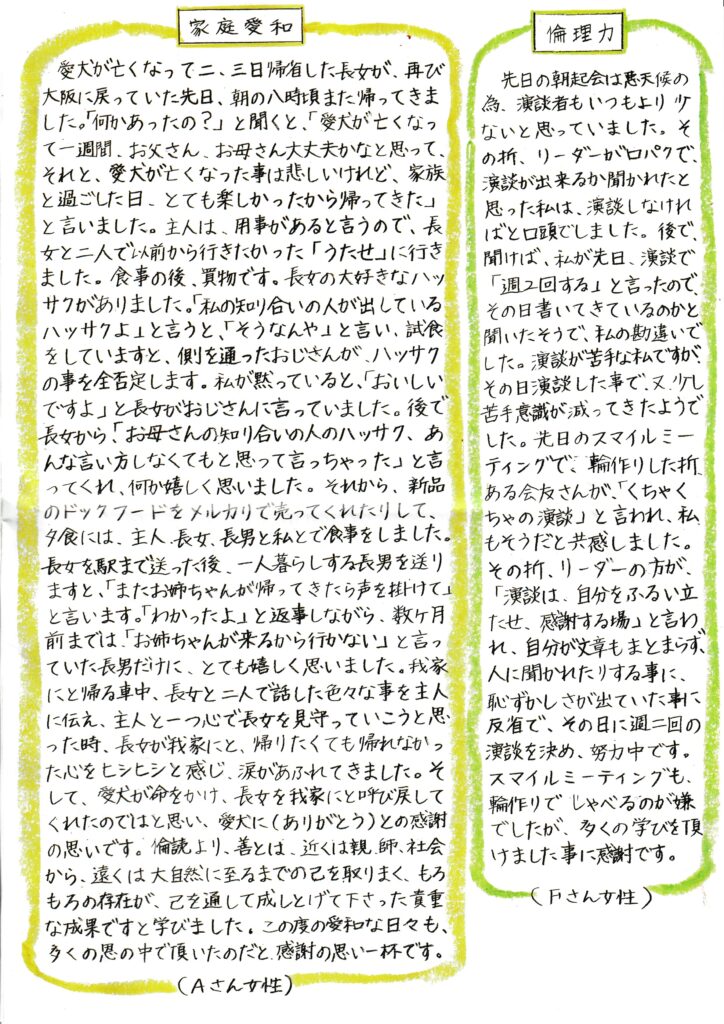 家庭愛和
愛犬が亡くなって二、三日帰省した長女が、再び
大阪に戻っていた先日、朝の八時頃また帰ってきま
した。「何かあったの？」と聞くと、「愛犬が亡くなっ
て一週間、お父さん、お母さん大丈夫かなと思って、
それと、愛犬が亡くなった事は悲しいけれど、家族
と過ごした日、とても楽しかったから帰ってきた」
と言いました。主人は、用事があると言うので、長
女と二人で以前から行きたかった「うたせ」に行き
ました。食事の後、買物です。長女の大好きなハッ
サクがありました。「私の知り合いの人が出している
ハッサクよ」と言うと、「そうなんや」と言い、試食
をしていますと、側を通ったおじさんが、ハッサク
の事を全否定します。私が黙っていると、「おいしい
ですよ」と長女がおじさんに言っていました。後で
長女から、「お母さんの知り合いの人のハッサク、あ
んな言い方しなくてもと思って言っちゃった」と言
ってくれ、何か嬉しく思いました。それから、新品
のドックフードをメルカリで売ってくれたりして、
夕食には、主人、長女、長男と私とで食事をしました。
長女を駅まで送った後、一人暮らしする長男を送り
ますと、「またお姉ちゃんが帰ってきたら声を掛けて」
と言います。「わかったよ」と返事しながら、数ヶ月
前までは、「お姉ちゃんが来るから行かない」と言っ
ていた長男だけに、とても嬉しく思いました。我家
にと帰る車中、長女と二人で話した色々な事を主人
に伝え、主人と一つ心で長女を見守っていこうと思
った時、長女が我家にと、帰りたくても帰れなかっ
た心をヒシヒシと感じ、涙があふれてきました。そ
して、愛犬が命をかけ、長女を我家にと呼び戻して
くれたのではと思い、愛犬に（ありがとう）との感謝
の思いです。倫読より、善とは、近くは親、師、社会
から、遠くは大自然に至るまでの己を取りまく、もろ
もろの存在が、己を通して成しとげて下さった貴重
な成果ですと学びました。この度の愛和な日々も、
多くの恩の中で頂いたのだと、感謝の思い一杯です。
（Aさん女性）
倫理力
先日の朝起会は悪天候の
為、演談者もいつもより少
ないと思っていました。そ
の折、リーダーが口パクで、
演談が出来るか聞かれたと
思った私は、演談しなけれ
ばと口頭でしました。後で、
聞けば、私が先日、演談で
「週2回する」と言ったので、
その日書いてきているのかと
聞いたそうで、私の勘違いで
した。演談が苦手な私ですが、
その日演談した事で、又、少し
苦手意識が減ってきたようで
した。先日のスマイルミー
ティングで、輪作りした折、
ある会友さんが、「くちゃく
ちゃの演談」と言われ、私
もそうだと共感しました。
その折、リーダーの方が、
「演談は、自分をふるい立
たせ、感謝する場」と言わ
れ、自分が文章もまとまらず、
人に聞かれたりする事に、
恥ずかしさが出ていた事に
反省で、その日に週二回の
演談を決め、努力中です。
スマイルミーティングも、
輪作りで しゃべるのが嫌
でしたが、多くの学びを頂
けました事に感謝です。
（Fさん女性）